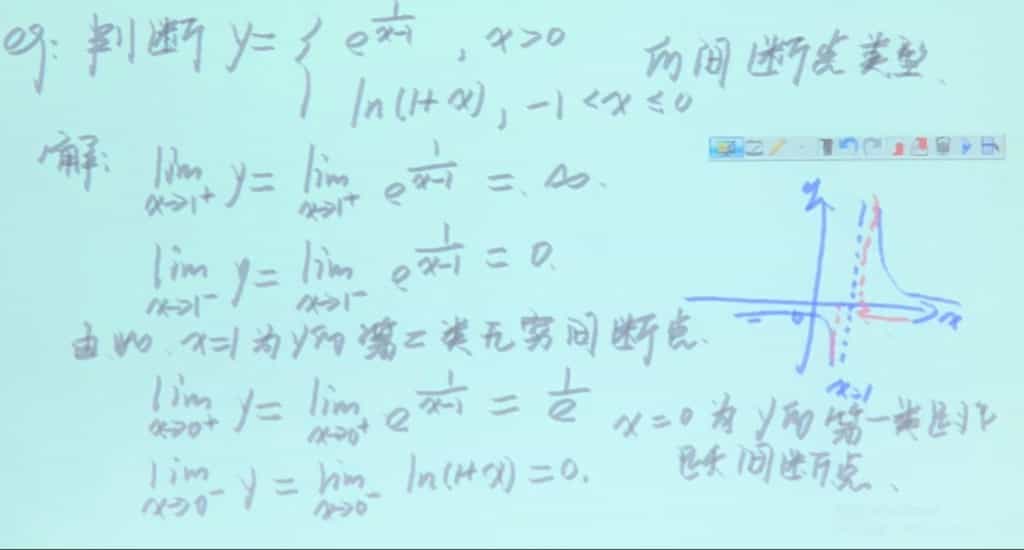 eg: 判断 y = { e^{\frac{1}{x-1}}, x>0
ln(1+x), -1<x≤0 的间断点类型.
解: lim_{x→1^+} y = lim_{x→1^+} e^{\frac{1}{x-1}} = ∞.
lim_{x→1^-} y = lim_{x→1^-} e^{\frac{1}{x-1}} = 0.
x=1 为 y 的 第二类无穷间断点.
lim_{x→0^+} y = lim_{x→0^+} e^{\frac{1}{x-1}} = \frac{1}{e}
lim_{x→0^-} y = lim_{x→0^-} ln(1+x) = 0.
x=0 为 y 的 第一类
跃间断点.
y
0
x
x=1